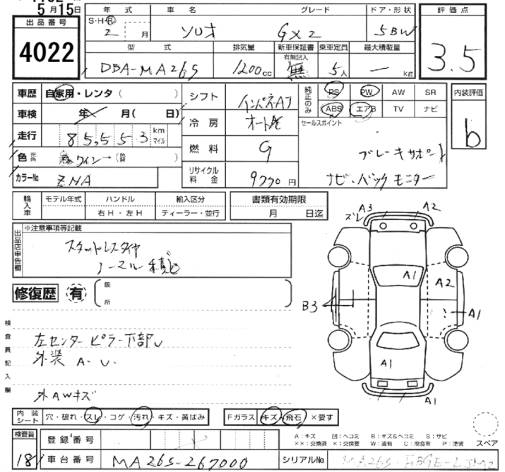 5月15日
出品番号
4022
年式 車名 グレード ドア・形状
S・H・R 2 月 ソリオ GX2 5BW
型式 排気量 新車保証書 乗車定員 最大積載量
有無記入
DBA-MA26S 1200cc 無 5人 — kg
評価点
3.5
車歴 自家用・レンタ ( )
車検 年 月 ( 日)
走行 85,553 km マイル
色
カラーNo ZNA
シフト インパネAT
冷房 オートAC
燃料 G
リサイクル料金 9770円
純正のみ PS PW AW SR
ABS エアB TV ナビ
セールスポイント
ブレーキサポート
ナビ・バックモニター
内装評価
b
輸入車 モデル年式 ハンドル 輸入区分
右H・左H ディーラー・並行
書類有効期限
月 日迄
出品店申告欄
※注意事項等記載
スタットレスタイヤ
ノーマル積込
修復歴 有
箇所
検査員記入欄
左センターピラー下部U
外装 A・U
外AWキズ
ズレ A3 A2
A1 A2
B3 A1
A1
内装シート 穴・破れ・スレ・コゲ・汚れ・キズ・黄ばみ
Fガラス キズ・飛石・×要す
スペア
検査員
18
登録番号
車台番号 MA26S-267000
シリアルNo